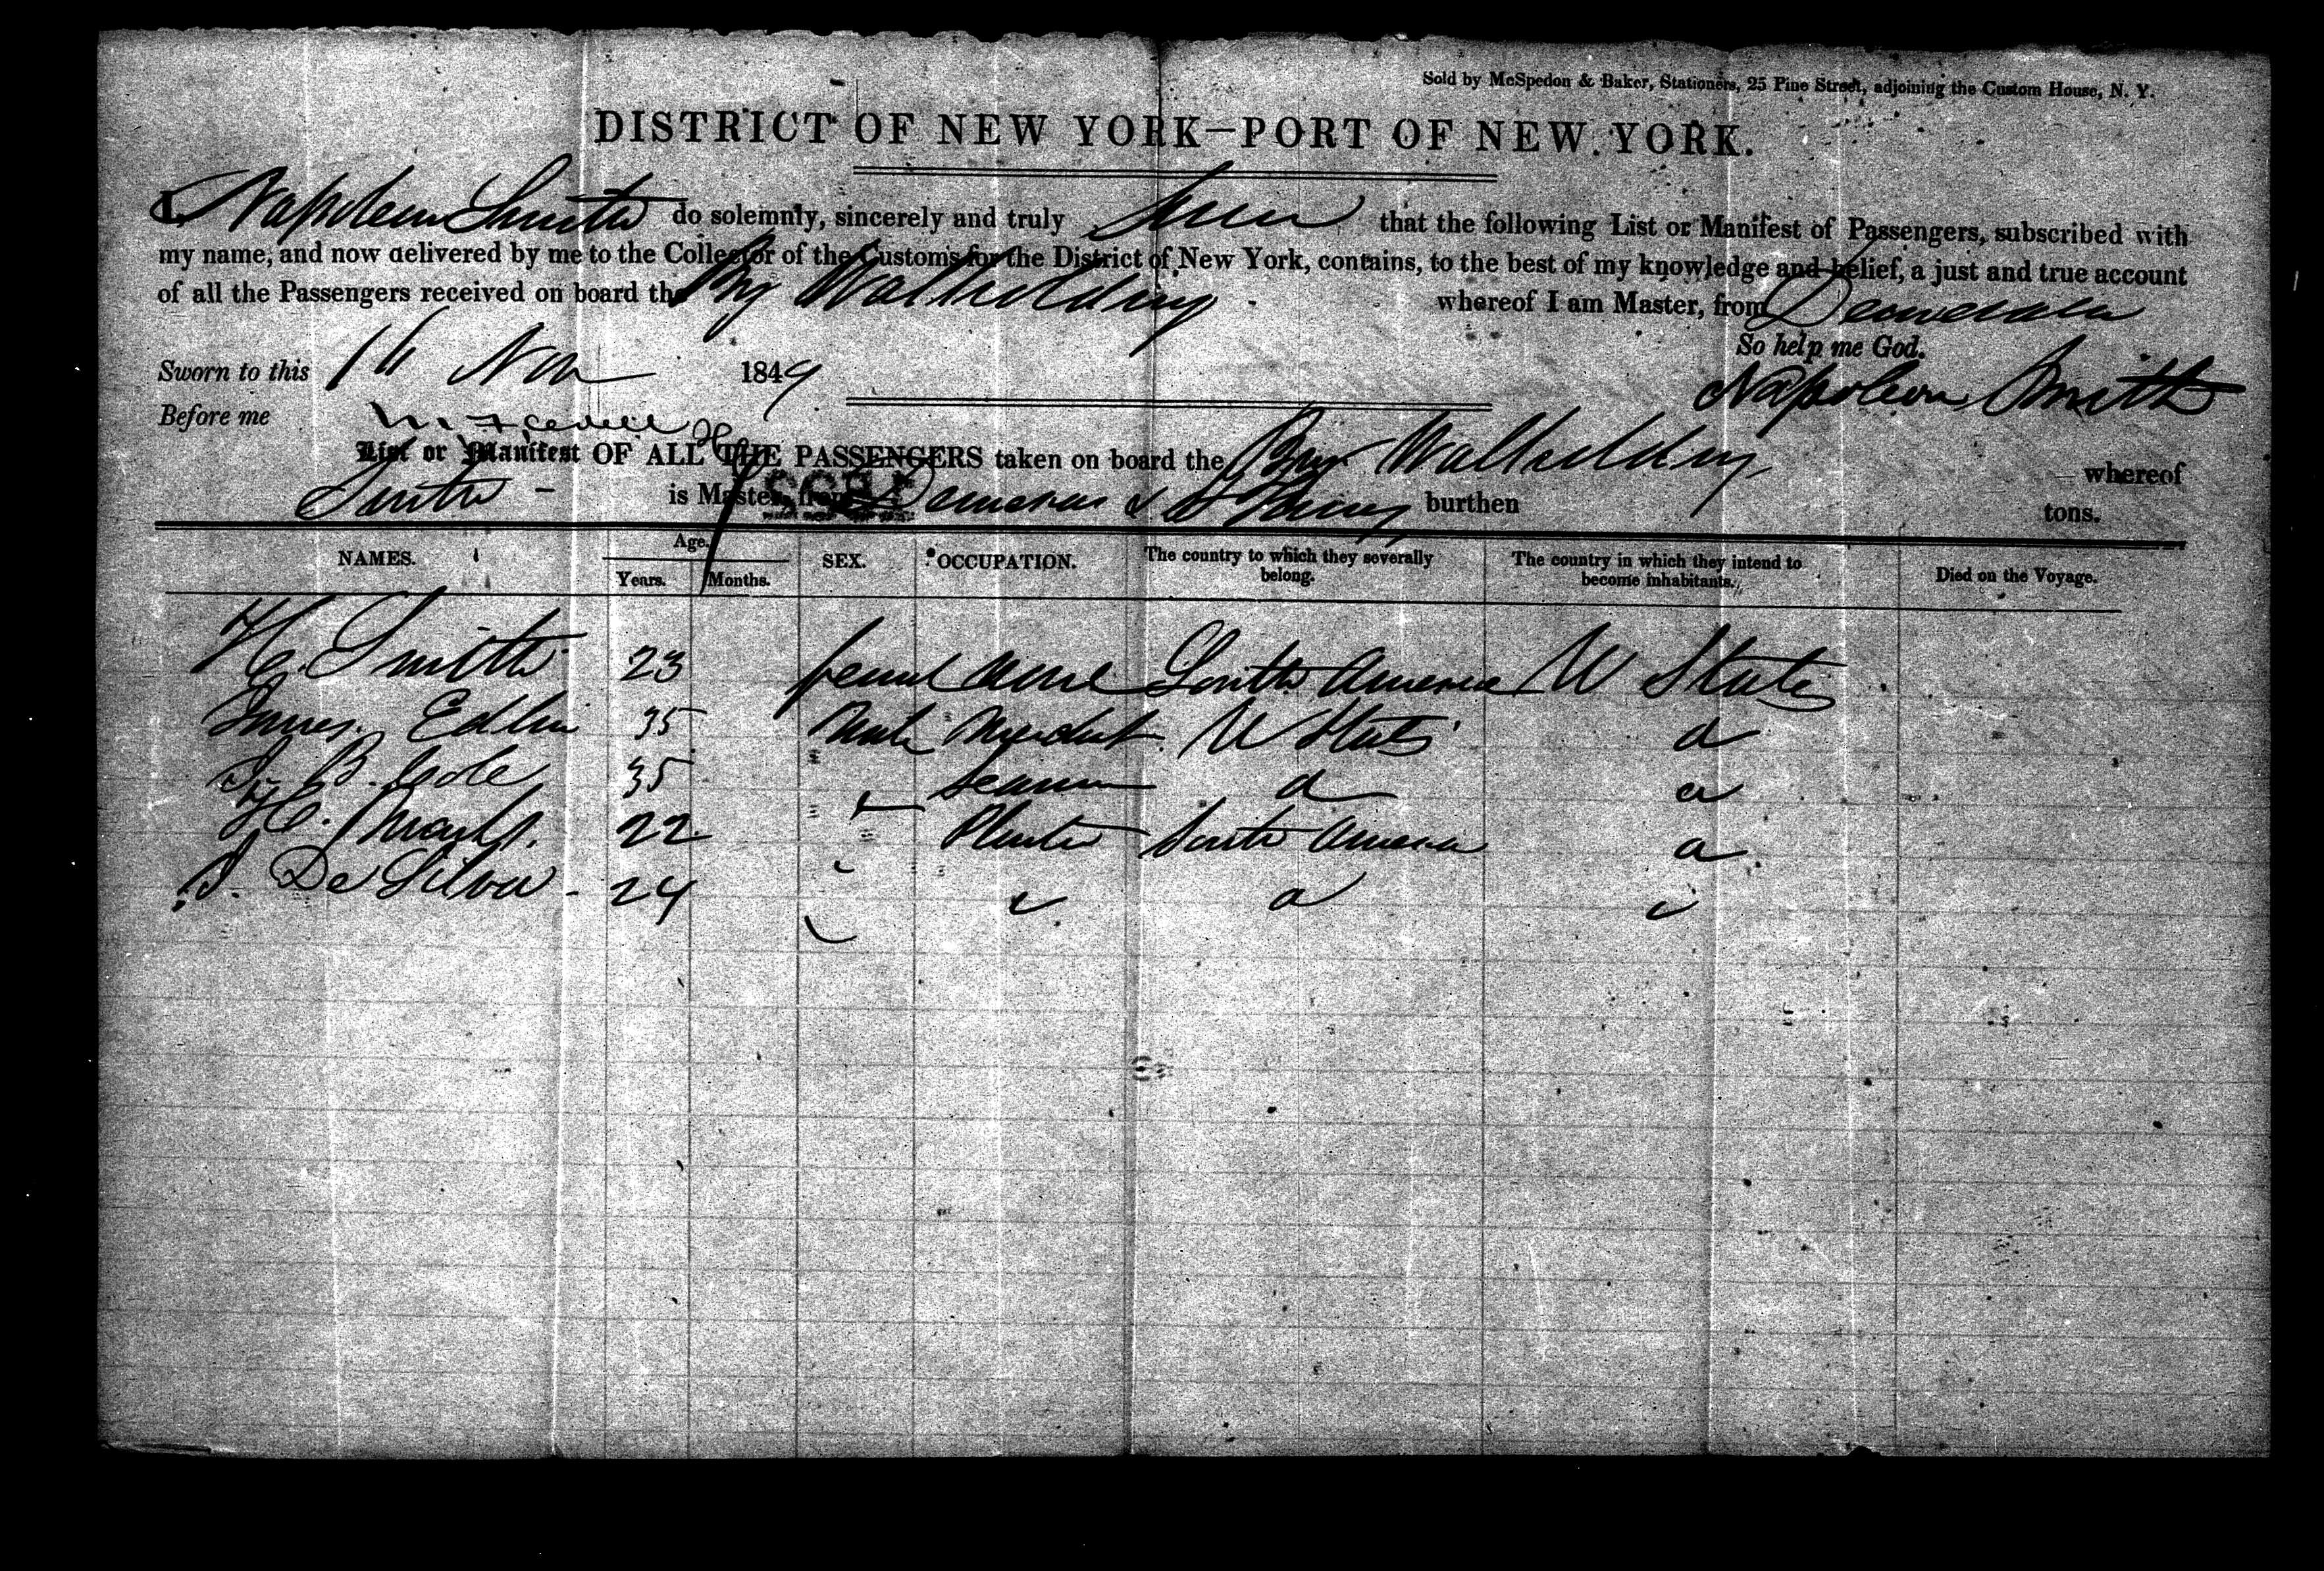 Sold by McSpedon & Baker, Stationers, 25 Pine Street, adjoining the Custom House, N. Y.
DISTRICT OF NEW YORK—PORT OF NEW YORK.
I, Napoleon Smith do solemnly, sincerely and truly swear that the following List or Manifest of Passengers, subscribed with
my name, and now delivered by me to the Collector of the Customs for the District of New York, contains, to the best of my knowledge and belief, a just and true account
of all the Passengers received on board the Brig Walholding whereof I am Master, from Demerara
So help me God.
Sworn to this 16 Nov 1849 Napoleon Smith
Before me
List or Manifest OF ALL THE PASSENGERS taken on board the Brig Walholding whereof
Smith is Master, from Demerara & burthen tons.
NAMES. Age. Years. Months. SEX. OCCUPATION. The country to which they severally belong. The country in which they intend to become inhabitants. Died on the Voyage.
H. Smith 23 femal South America U States
James Edlin 35 Male Merchant U States d
B. Cole 35 Seaman d d
H. 22 Planter South America d
J. De Silva 24 d